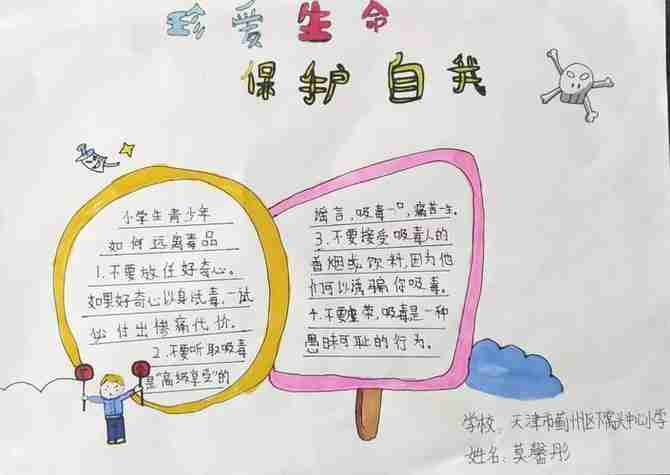 珍爱生命
保护自我
小学生青少年
如何远离毒品
1.不要放任好奇心。
如果好奇心以身试毒，一试
必付出惨痛代价。
2.不要听取吸毒
是“高级享受”的
谣言，吸毒一口，痛苦一生。
3.不要接受吸毒人的
香烟或饮料，因为他
们可以诱骗你吸毒。
4.不要虚荣，吸毒是一种
愚昧可耻的行为。
学校：天津市蓟州区下窝头中心小学
姓名：莫馨彤